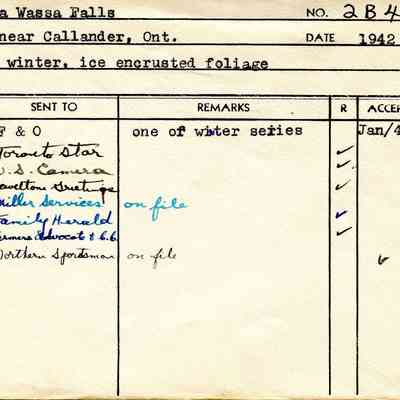 a Wassa Falls NO. 2B4
near Callander, Ont. DATE 1942
winter, ice encrusted foliage
SENT TO REMARKS R ACCEP
F & O one of winter series Jan/4
Toronto Star ✓
U.S. Camera ✓
Greetings ✓
Miller Services on file
Family Herald ✓
Farmers Advocate & C.G. ✓
Northern Sportsman on file